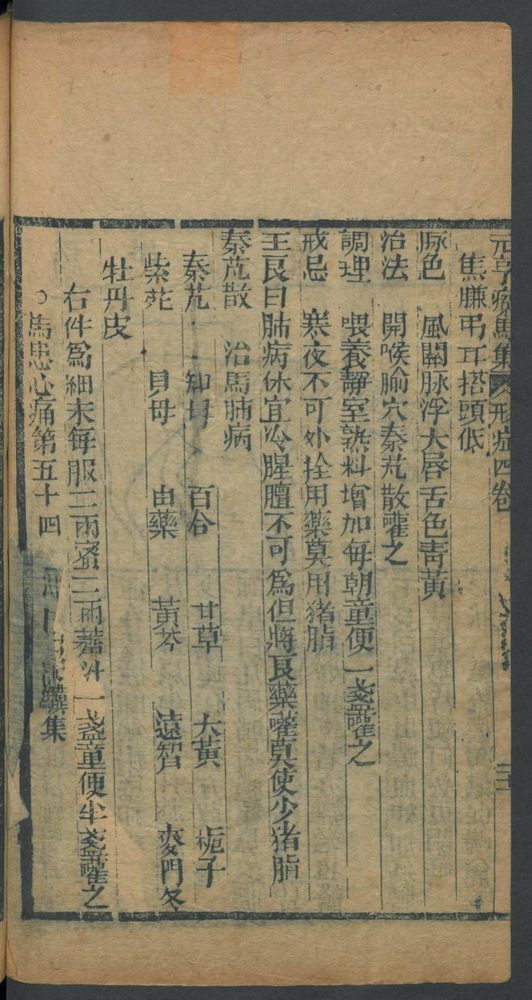 元亨療馬集 形症四卷
焦膁弔耳搭頭低
脉色　風關脉浮大唇舌色青黃
治法　開喉腧穴秦艽散嚾之
調理　喂養靜室熟料增加每朝童便一盞嚾之
戒忌　寒夜不可外拴用藥莫用猪脂
王良曰肺病休宜冷腥膻不可爲但將良藥嚾莫使少猪脂
秦艽散　治馬肺病
秦艽　知母　百合　甘草　大黃　梔子
紫菀　貝母　山藥　黃芩　遠智　麥門冬
牡丹皮
右件爲細末每服二兩蜜二兩虀汁一盞童便半盞嚾之
馬患心痛第五十四　集